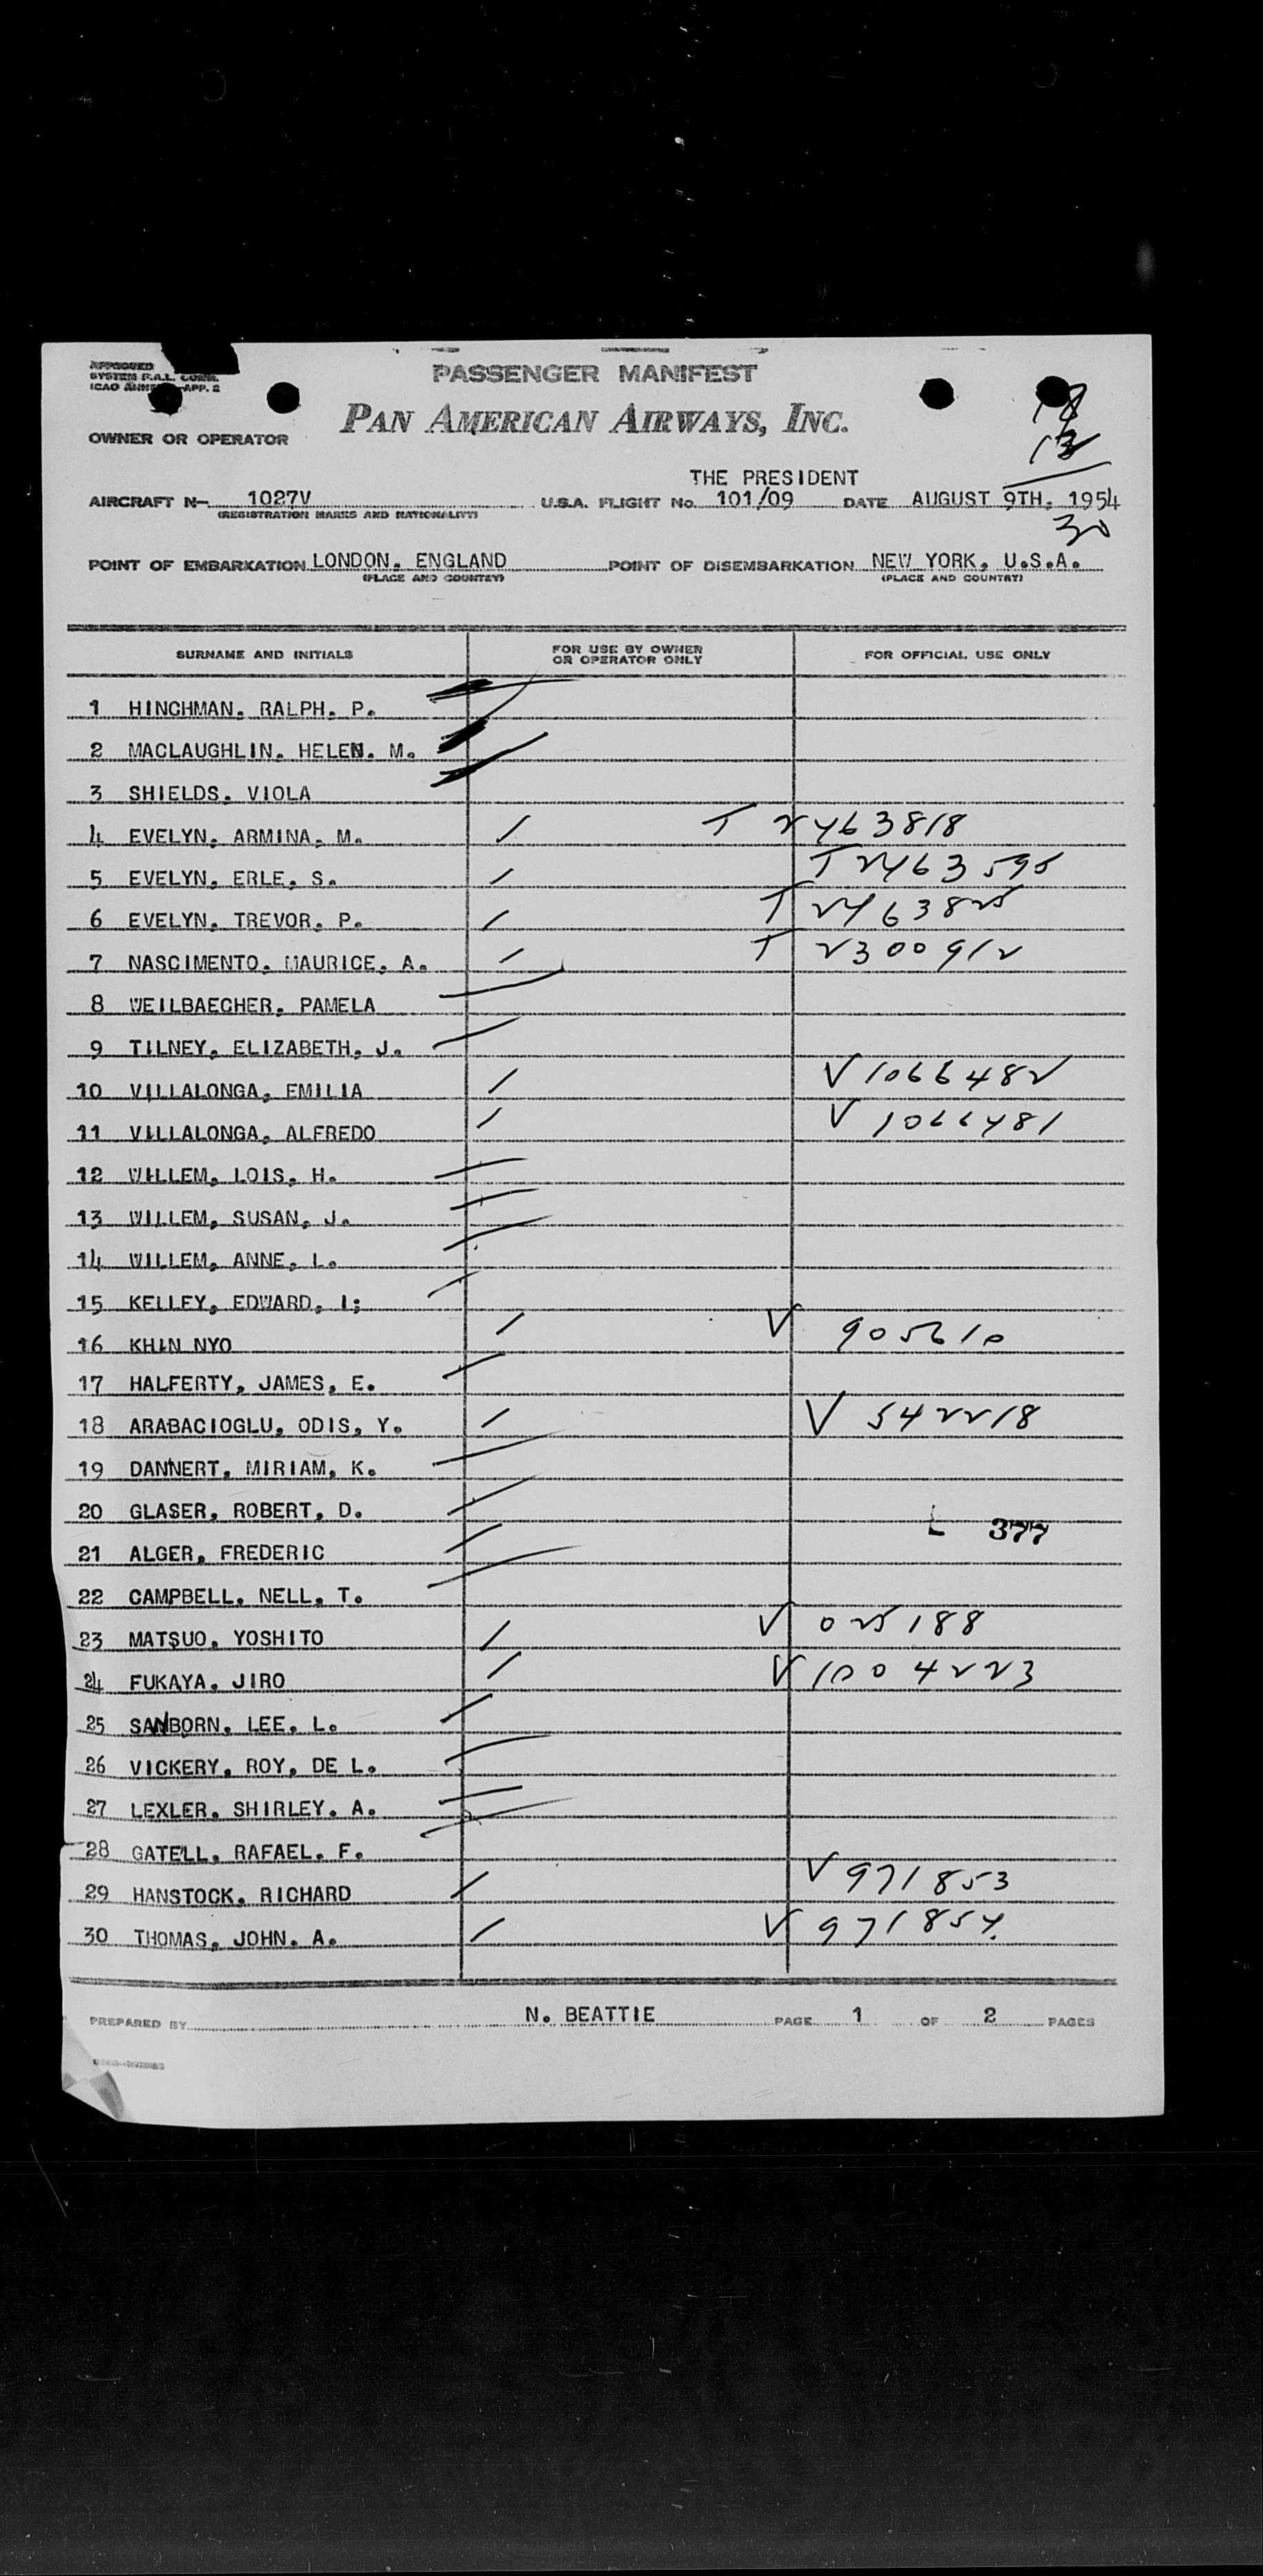 APPROVED
SYSTEM F.A.L. COMM.
ICAO ANNEX APP. 2
PASSENGER MANIFEST
PAN AMERICAN AIRWAYS, INC.
OWNER OR OPERATOR
18
12
THE PRESIDENT
AIRCRAFT N- 1027V U.S.A. FLIGHT No. 101/09 DATE AUGUST 9TH. 1954
(REGISTRATION MARKS AND NATIONALITY)
30
POINT OF EMBARKATION LONDON. ENGLAND POINT OF DISEMBARKATION NEW YORK, U.S.A.
(PLACE AND COUNTRY) (PLACE AND COUNTRY)
SURNAME AND INITIALS FOR USE BY OWNER OR OPERATOR ONLY FOR OFFICIAL USE ONLY
1 HINCHMAN. RALPH. P.
2 MACLAUGHLIN. HELEN. M.
3 SHIELDS. VIOLA
4 EVELYN. ARMINA. M. / T 2463818
5 EVELYN. ERLE. S. / T 2463595
6 EVELYN. TREVOR. P. / T 2463825
7 NASCIMENTO. MAURICE. A. / T 2300912
8 WEILBAECHER. PAMELA
9 TILNEY. ELIZABETH. J.
10 VILLALONGA, EMILIA / V 1066482
11 VILLALONGA, ALFREDO / V 1066481
12 WILLEM, LOIS, H.
13 WILLEM, SUSAN, J.
14 WILLEM, ANNE, L.
15 KELLEY, EDWARD, I;
16 KHIN NYO / V 905610
17 HALFERTY, JAMES, E.
18 ARABACIOGLU, ODIS, Y. / V 542218
19 DANNERT, MIRIAM, K.
20 GLASER, ROBERT, D.
L 377
21 ALGER, FREDERIC
22 CAMPBELL. NELL. T.
23 MATSUO. YOSHITO / V 025188
24 FUKAYA. JIRO / V 1004223
25 SANBORN. LEE. L.
26 VICKERY. ROY. DE L.
27 LEXLER. SHIRLEY. A.
28 GATELL. RAFAEL. F.
29 HANSTOCK. RICHARD / V 971853
30 THOMAS, JOHN. A. / V 971854
PREPARED BY N. BEATTIE PAGE 1 OF 2 PAGES